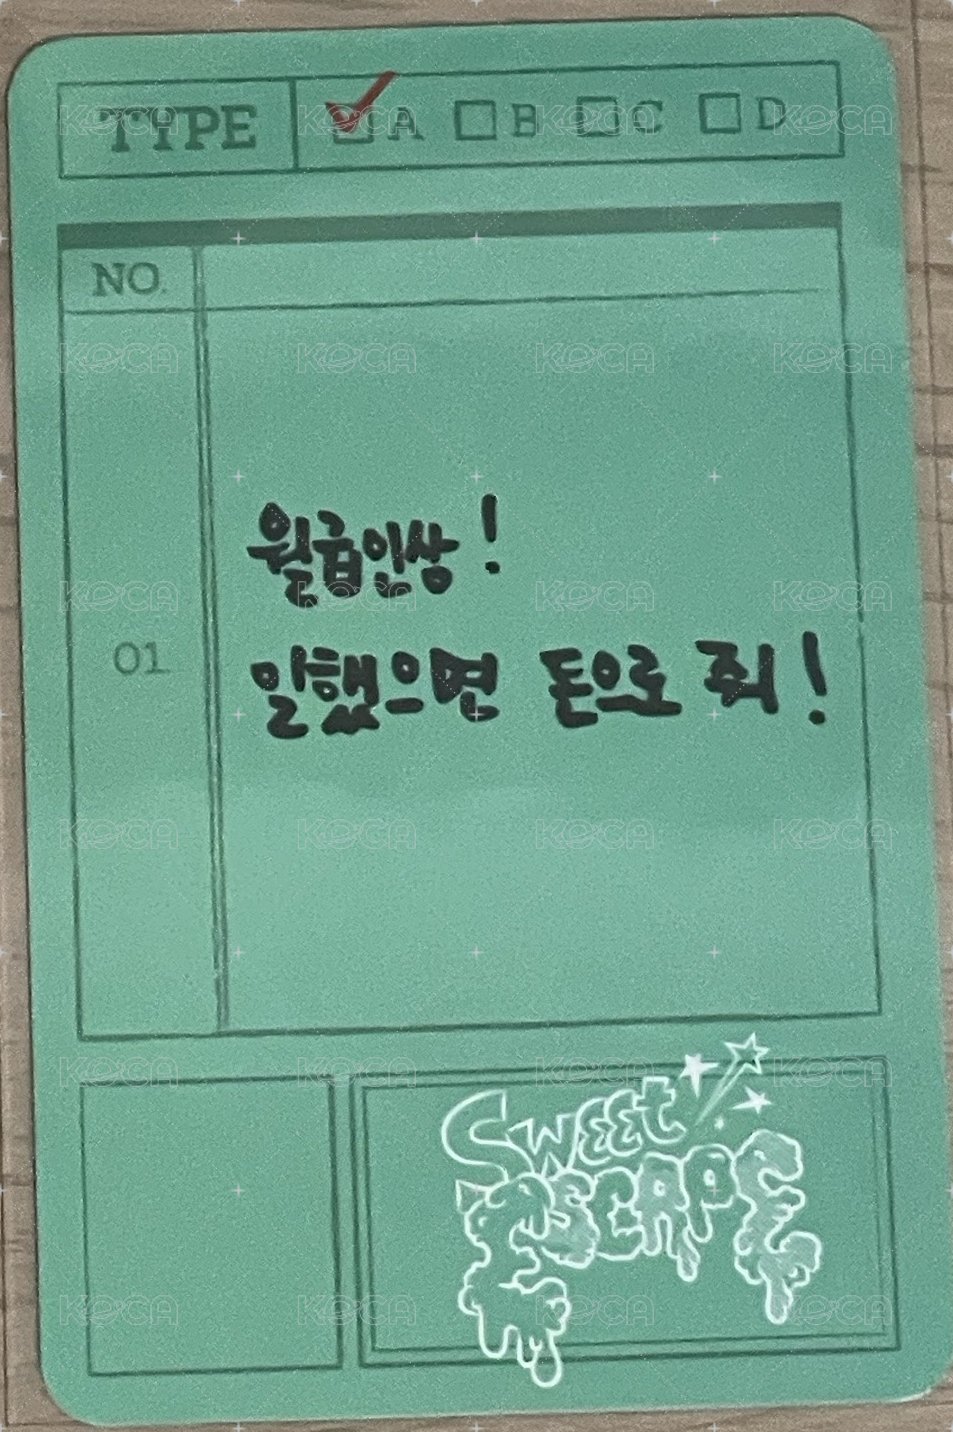 TYPE A B C D
NO.
01
월급인상!
일했으면 돈으로 줘!
SWEET
ESCAPE
KOCA